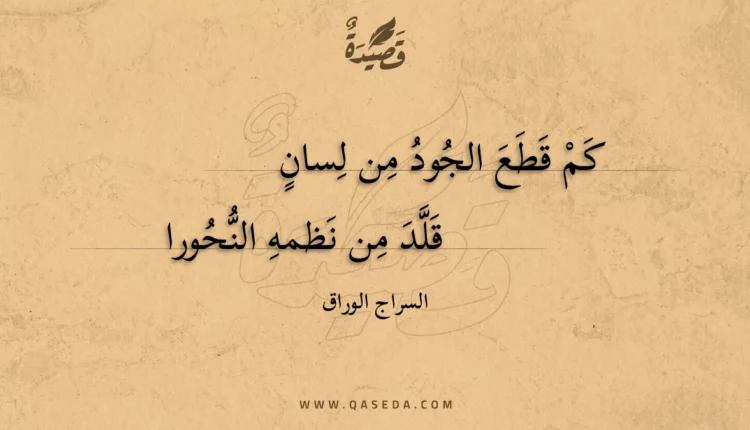 قَصِيْدَةٌ
كَمْ قَطَعَ الجُودُ مِن لِسانٍ
قَلَّدَ مِن نَظمهِ النُّحُورا
السراج الوراق
WWW.QASEDA.COM